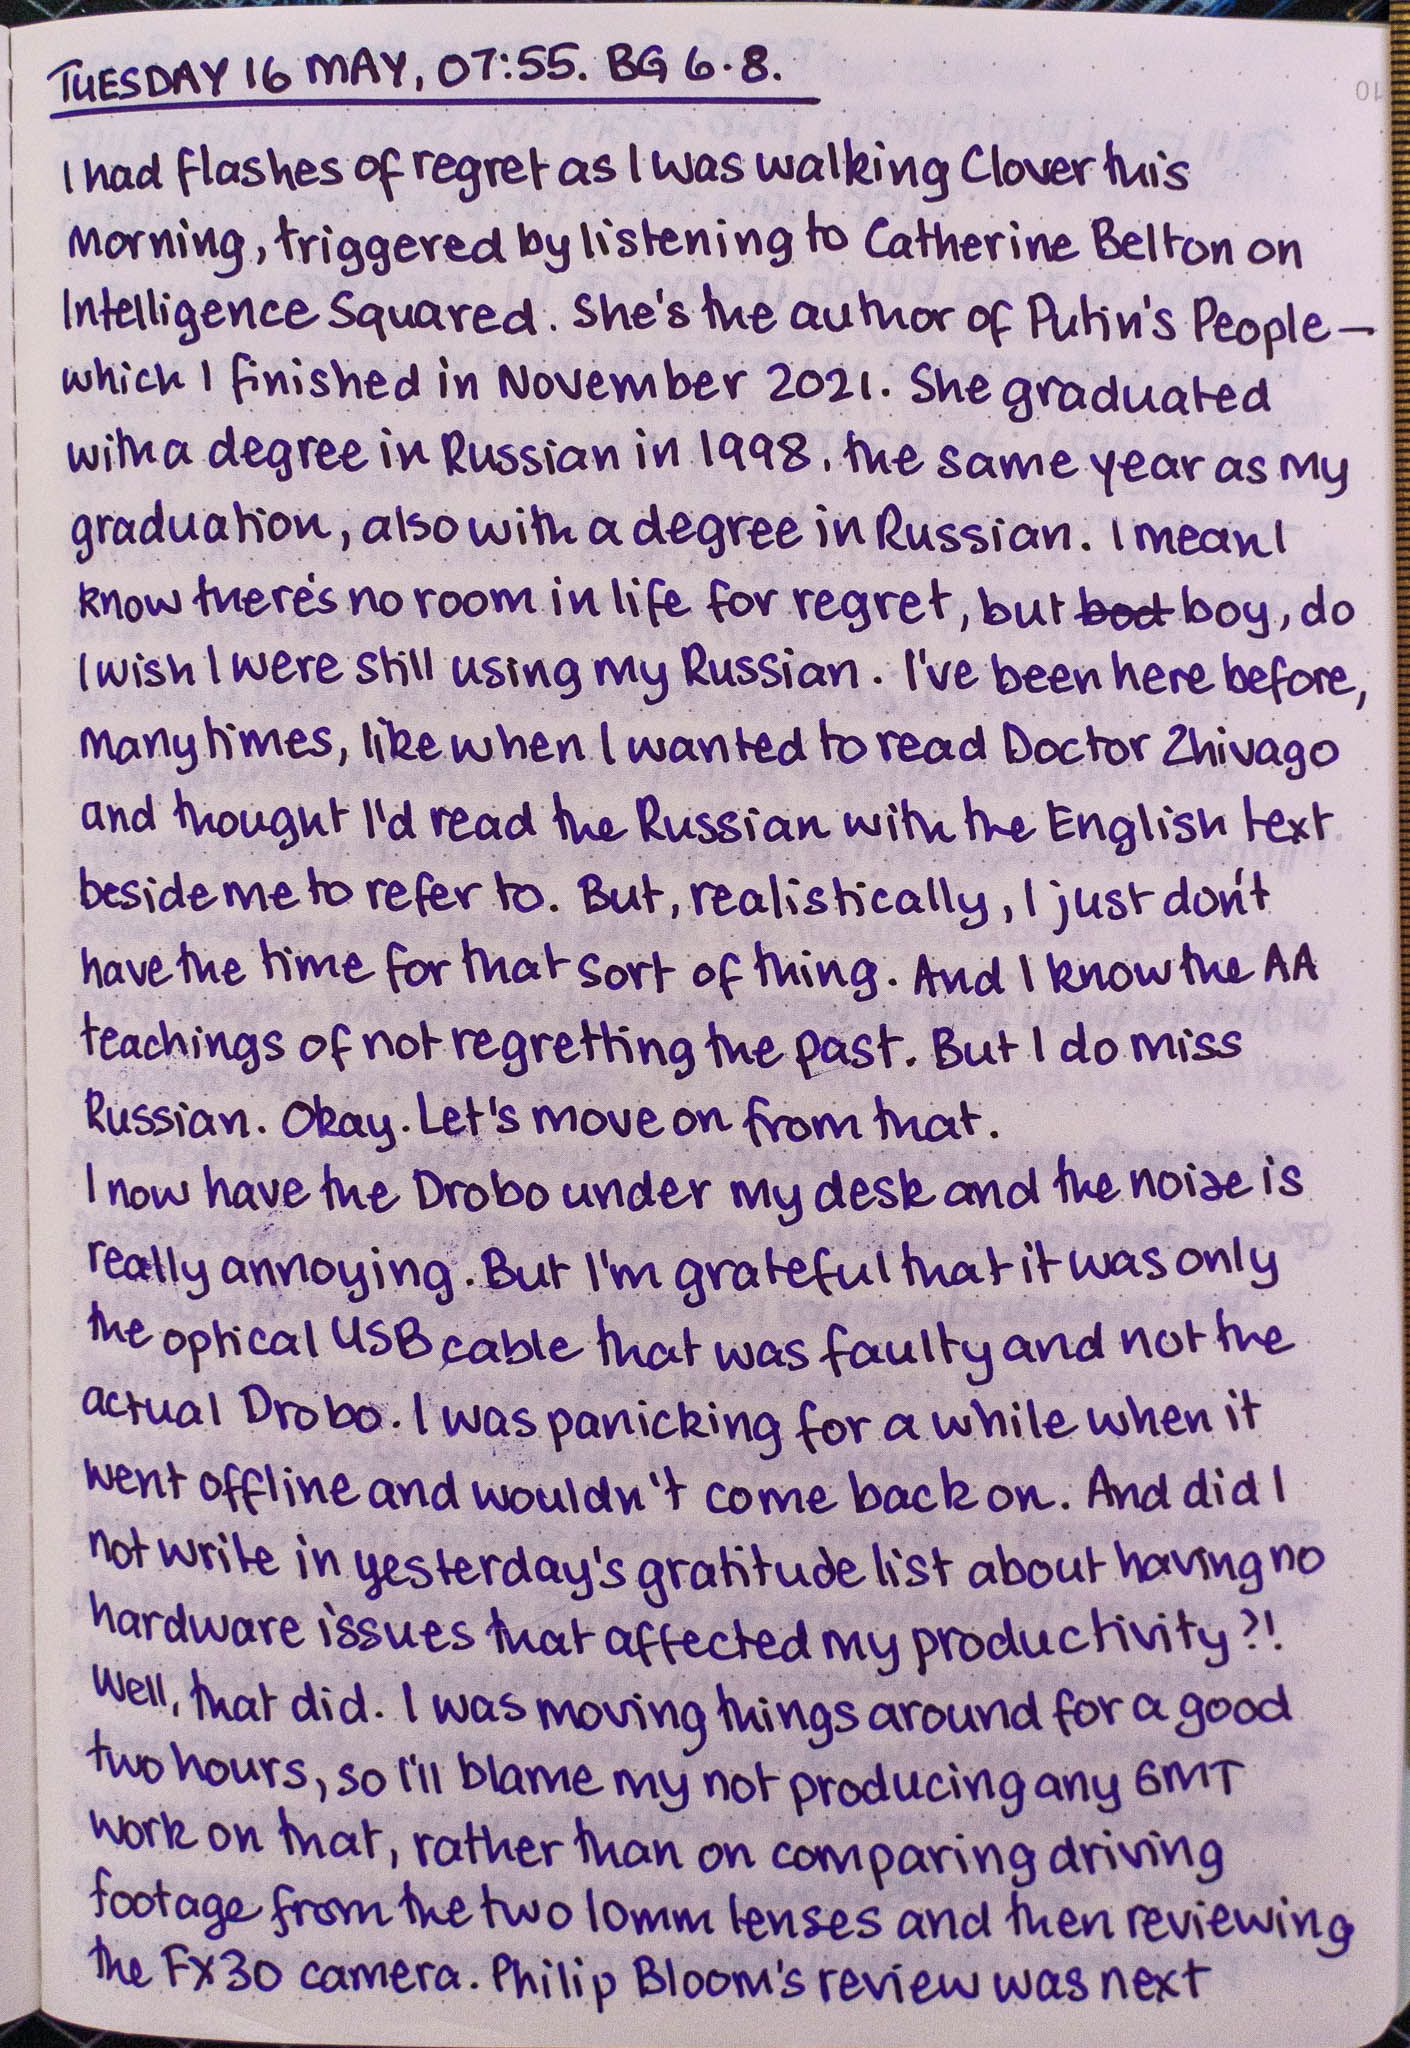 TUESDAY 16 MAY, 07:55. BG 6.8.
I had flashes of regret as I was walking Clover this
morning, triggered by listening to Catherine Belton on
Intelligence Squared. She's the author of Putin's People —
which I finished in November 2021. She graduated
with a degree in Russian in 1998, the same year as my
graduation, also with a degree in Russian. I mean I
know there's no room in life for regret, but bod boy, do
I wish I were still using my Russian. I've been here before,
many times, like when I wanted to read Doctor Zhivago
and thought I'd read the Russian with the English text
beside me to refer to. But, realistically, I just don't
have the time for that sort of thing. And I know the AA
teachings of not regretting the past. But I do miss
Russian. Okay. Let's move on from that.
I now have the Drobo under my desk and the noise is
really annoying. But I'm grateful that it was only
the optical USB cable that was faulty and not the
actual Drobo. I was panicking for a while when it
went offline and wouldn't come back on. And did I
not write in yesterday's gratitude list about having no
hardware issues that affected my productivity?!
Well, that did. I was moving things around for a good
two hours, so I'll blame my not producing any GMT
work on that, rather than on comparing driving
footage from the two 10mm lenses and then reviewing
the FX30 camera. Philip Bloom's review was next
10